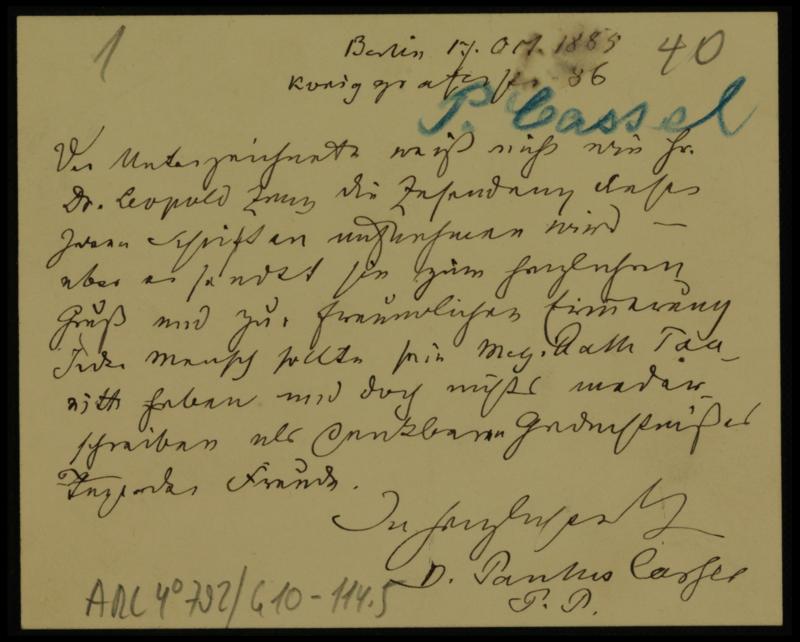 1
Berlin 17. Oct. 1885
40
Königgrätzerstr. 36
P. Cassel
Der Unterzeichnete weiß nicht wie Hr.
Dr. Leopold Zunz die Zusendung dieser
Schriften aufnehmen wird —
aber er sendet sie zum herzlichen
Gruß und zur freundlichen Erinnerung
Jeder Mensch sollte sein
haben und doch nichts
schreiben als dankbaren Gedächtnißes
Freude.
In Herzlichkeit
D. Paulus Cassel
P. P.
ARC 4° 792/G10-114.5